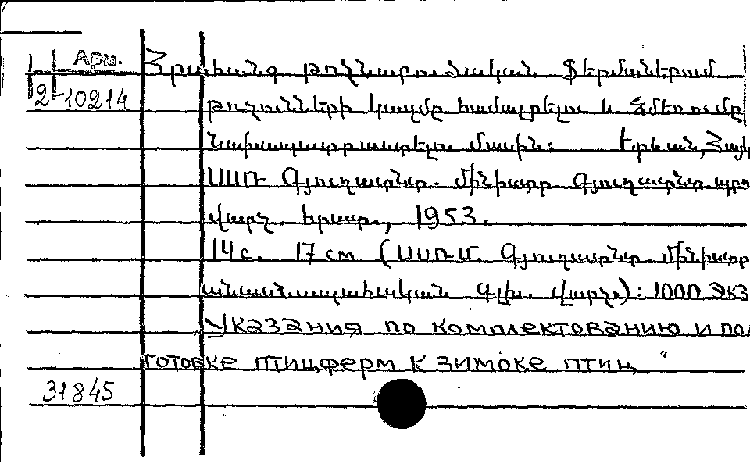 Арм.
2-10214
Հրահանգ թռչնաբուծական ֆերմաներում
թռչունների կազմը համալրելու և ձմեռումը
նախապատրաստելու մասին: Երևան, Հայկ
ՍՍՌ Գյուղատնտ. մինիստր. գյուղատնտ. պրո
վարչ. հրատ., 1953.
14 с. 17 cm (ՍՍՌՄ Գյուղատնտ մինիստր
անասնապահական Գլխ. վարչ.): 1000 экз
Указания по комплектованию и под
готовке птицферм к зимовке птиц
31845